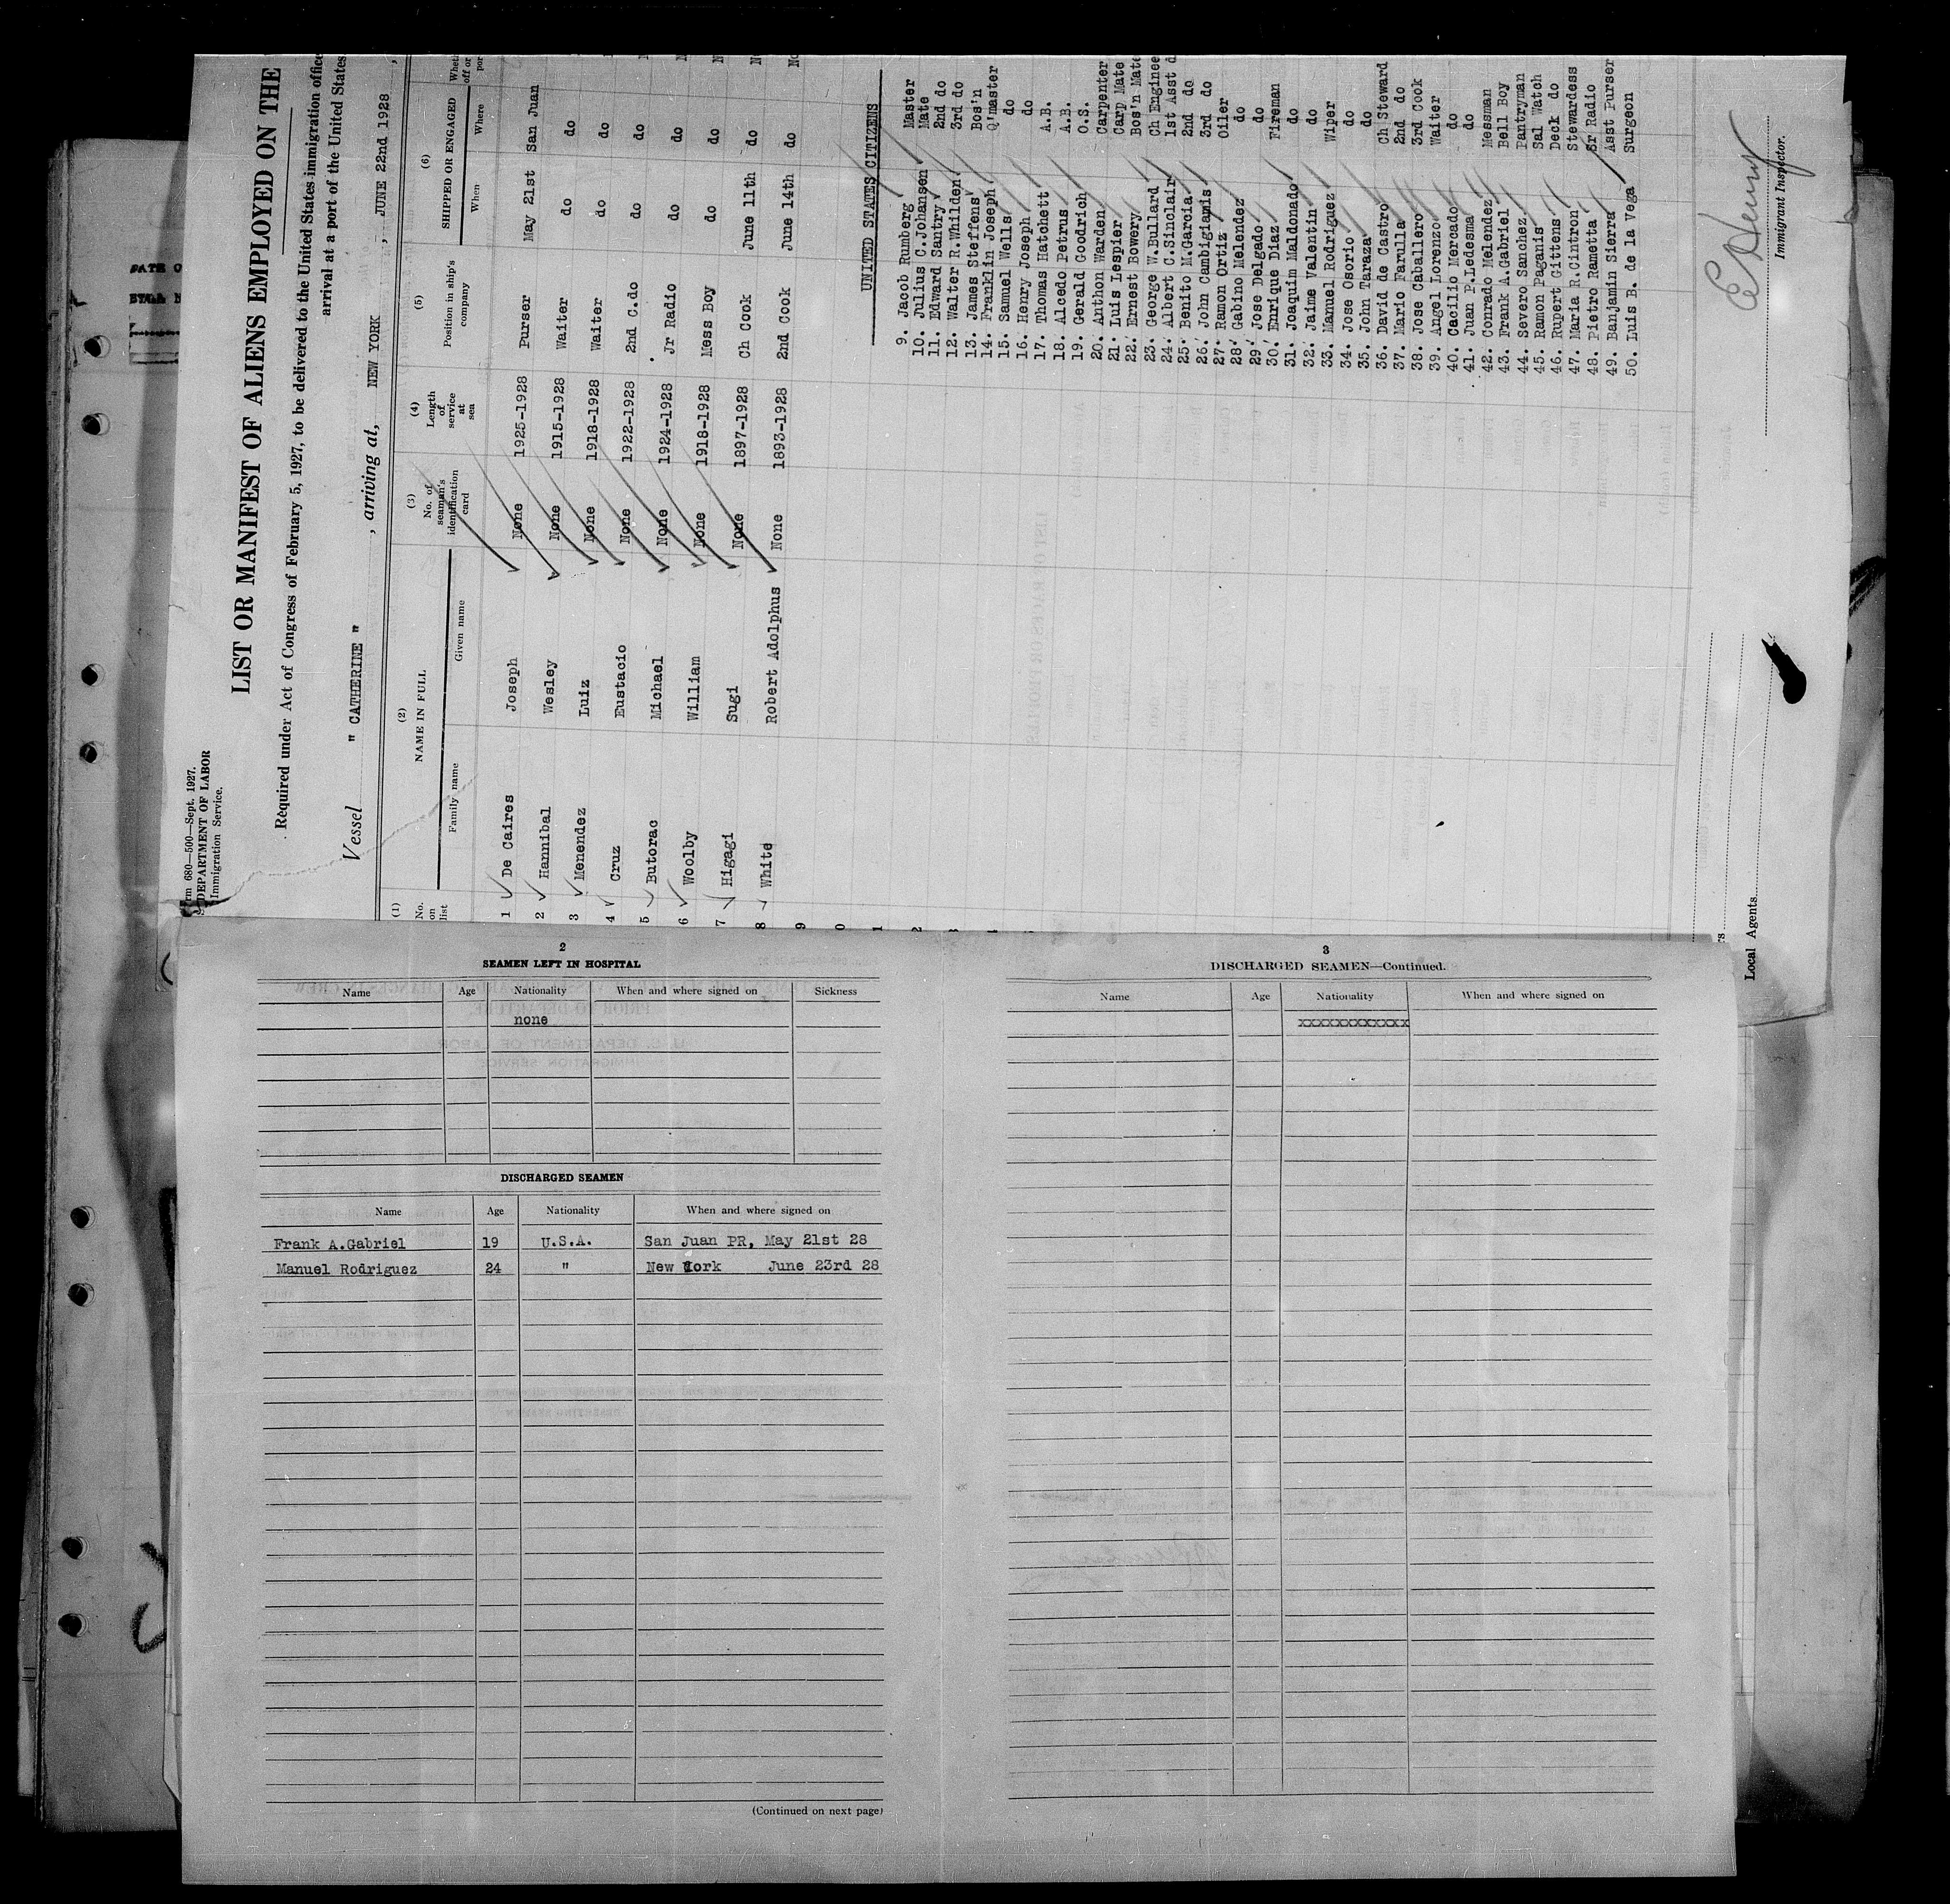 Form 680—500—Sept. 1927.
DEPARTMENT OF LABOR
Immigration Service.
LIST OR MANIFEST OF ALIENS EMPLOYED ON THE
Required under Act of Congress of February 5, 1927, to be delivered to the United States immigration office
arrival at a port of the United States
Vessel " CATHERINE " , arriving at, NEW YORK , JUNE 22nd 1928 ,
(1) (2) (3) (4) (5) (6)
No. on list NAME IN FULL No. of seaman's identification card Length of service at sea Position in ship's company SHIPPED OR ENGAGED
Family name Given name When Where
1 De Caires Joseph None 1925-1928 Purser May 21st San Juan
2 Hannibal Wesley None 1915-1928 Waiter do do
3 Menendez Luiz None 1918-1928 Waiter do do
4 Cruz Eustacio None 1922-1928 2nd C.do do do
5 Butorac Michael None 1924-1928 Jr Radio do do
6 Woolby William None 1918-1928 Mess Boy do do
7 Higagi Sugi None 1897-1928 Ch Cook June 11th do
8 White Robert Adolphus None 1893-1928 2nd Cook June 14th do
9
UNITED STATES CITIZENS
9. Jacob Rumberg Master
10. Julius C.Johansen Mate
11. Edward Santry 2nd do
12. Walter R.Whilden 3rd do
13. James Steffens Bos'n
14. Franklin Joseph Q'master
15. Samuel Wells do
16. Henry Joseph do
17. Thomas Hatchett A.B.
18. Alcedo Petrus A.B.
19. Gerald Goodrich O.S.
20. Anthon Warden Carpenter
21. Luis Lespier Carp Mate
22. Ernest Bowery Bos'n Mate
23. George W.Bullard Ch Enginee
24. Albert C.Sinclair 1st Asst d
25. Benito M.Garcia 2nd do
26. John Cambigianis 3rd do
27. Ramon Ortiz Oiler
28. Gabino Melendez do
29. Jose Delgado do
30. Enrique Diaz Fireman
31. Joaquim Maldonado do
32. Jaime Valentin do
33. Manuel Rodriguez Wiper
34. Jose Osorio do
35. John Taraza do
36. David de Castro Ch Steward
37. Mario Farulla 2nd do
38. Jose Caballero 3rd Cook
39. Angel Lorenzo Waiter
40. Cacilio Mercado do
41. Juan P.Ledesma do
42. Conrado Melendez Messman
43. Frank A.Gabriel Bell Boy
44. Severo Sanchez Pantryman
45. Ramon Paganis Sal Watch
46. Rupert Gittens Deck do
47. Maria R.Cintron Stewardess
48. Pietro Rametta Sr Radio
49. Banjamin Sierra Asst Purser
50. Luis B. de la Vega Surgeon
Immigrant Inspector.
Local Agents
2
SEAMEN LEFT IN HOSPITAL
Name Age Nationality When and where signed on Sickness
none
DISCHARGED SEAMEN
Name Age Nationality When and where signed on
Frank A.Gabriel 19 U.S.A. San Juan PR, May 21st 28
Manuel Rodriguez 24 " New York June 23rd 28
(Continued on next page)
3
DISCHARGED SEAMEN—Continued.
Name Age Nationality When and where signed on
xxxxxxxxxxxxx